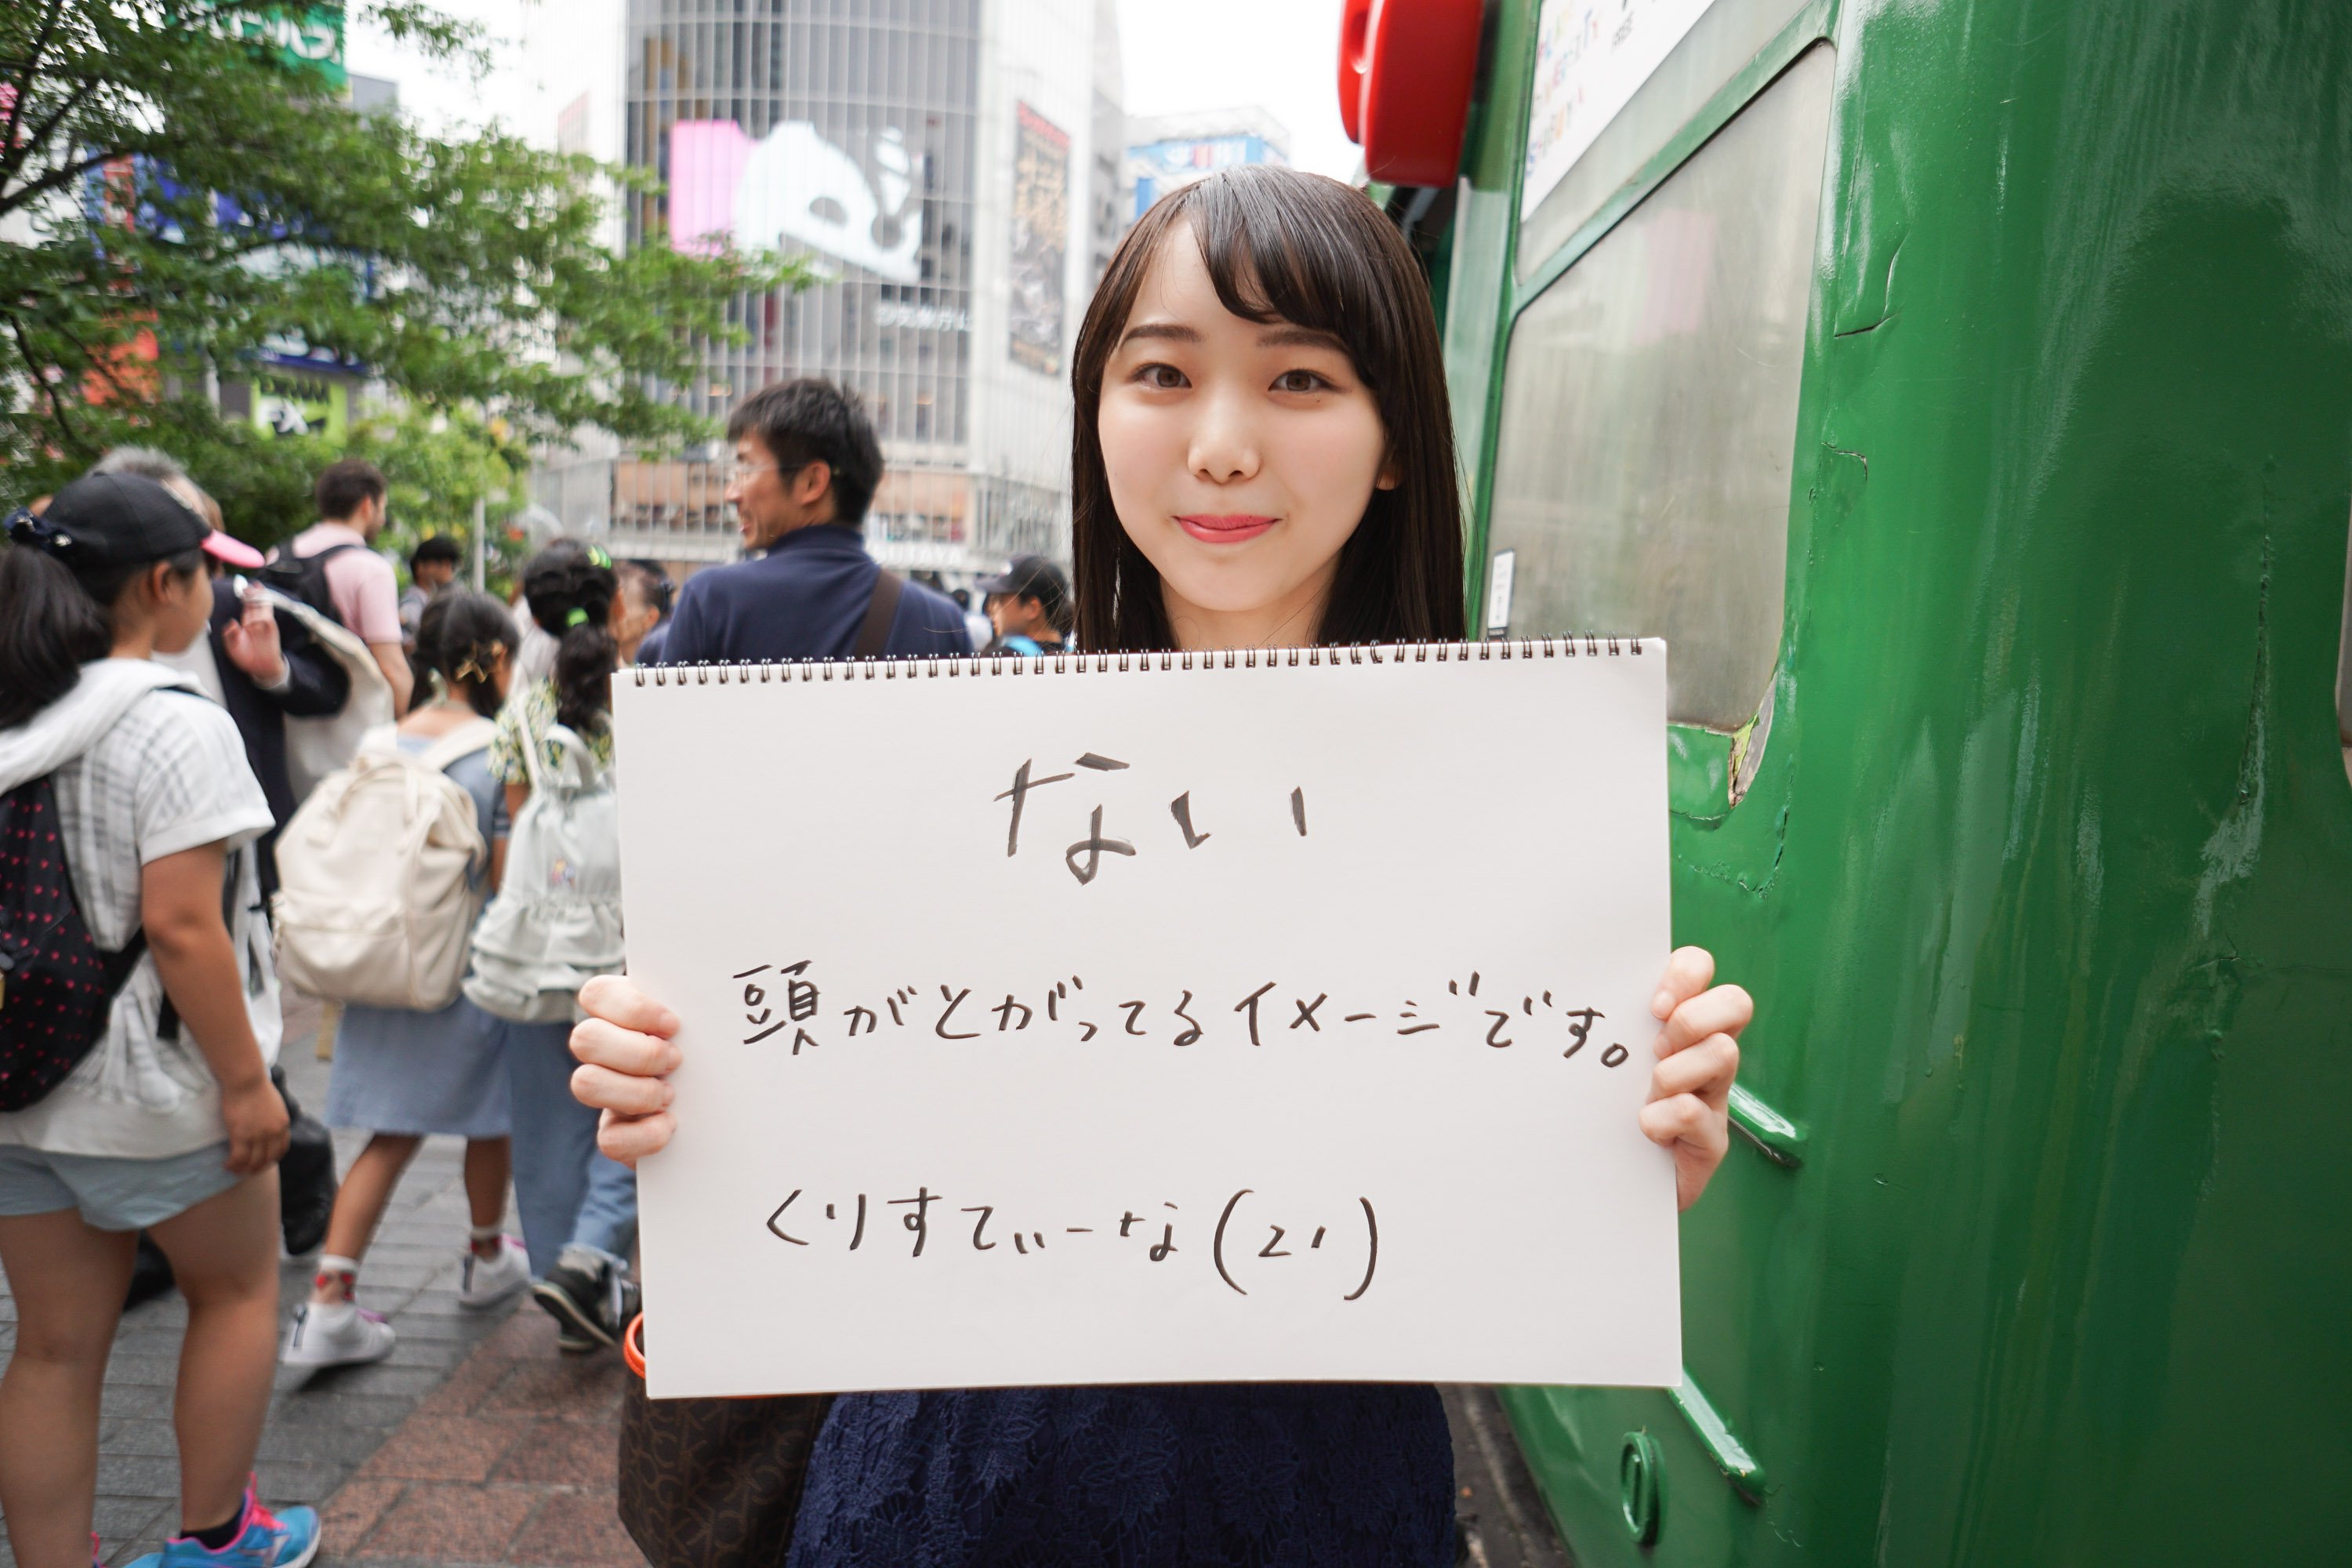 ない
頭がとがってるイメージです。
くりすてぃーな(21)
FX